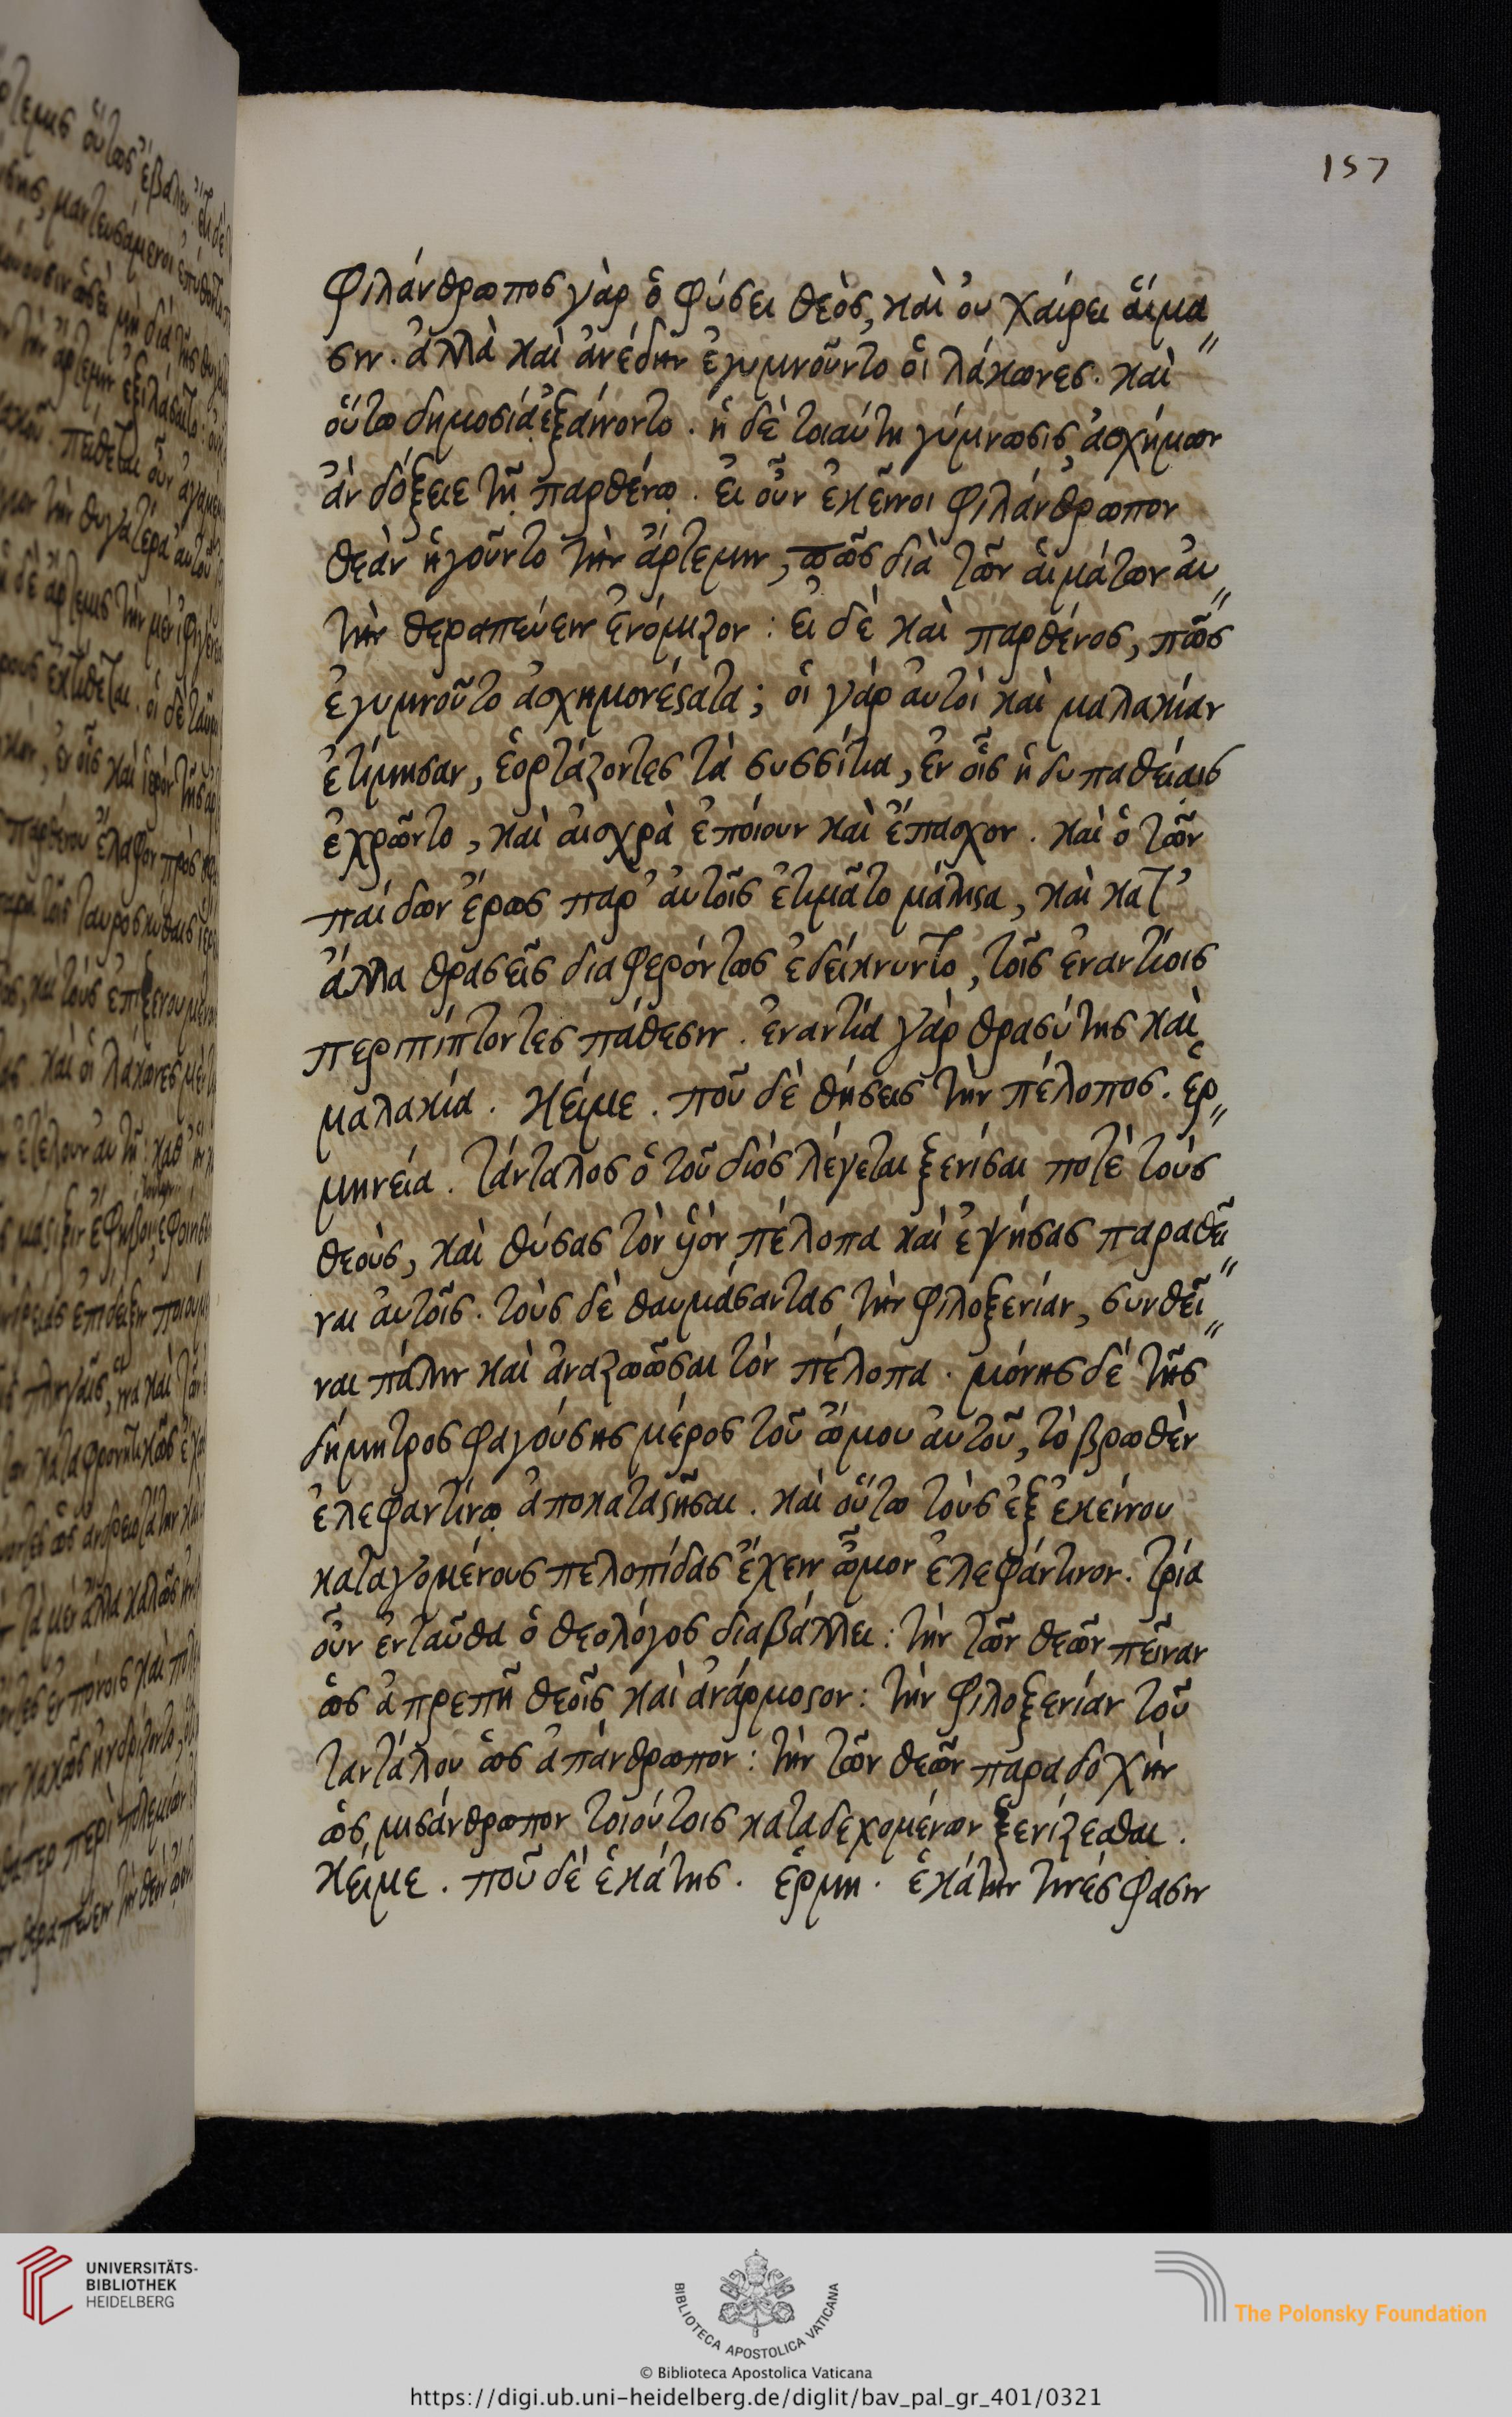 157
φιλάνθρωπος γὰρ ὁ φύσει θεὸς, καὶ οὐ χαίρει αἵμα〃
σιν. ἀλλὰ καὶ ἀνέδην ἐγυμνοῦντο οἱ λάκωνες. καὶ
οὕτω δημοσία ἐξαίνοντο. ἡ δὲ τοιαύτη γύμνωσις, ἀσχήμων
ἀν δόξειε τῇ παρθένῳ. εἰ οὖν ἐκεῖνοι φιλάνθρωπον
θεὰν ἡγοῦντο τὴν ἄρτεμιν, πῶς διὰ τῶν αἱμάτων αὐ〃
τὴν θεραπεύειν ἐνόμιζον: εἰ δὲ καὶ παρθένος, πῶς
ἐγυμνοῦτο ἀσχημονέϛατα; οἱ γὰρ αὐτοὶ καὶ μαλακίαν
ἐτίμησαν, ἑορτάζοντες τὰ συσσίτια, ἐν οἷς ἡδυπαθείαις
ἐχρῶντο, καὶ αἰσχρὰ ἐποίουν καὶ ἔπασχον. καὶ ὁ τῶν
παίδων ἔρως παρ' αὐτοῖς ἐτιμᾶτο μάλιϛα, καὶ κατ'
ἄλλα θρασεῖς διαφερόντως ἐδείκνυντο, τοῖς ἐναντίοις
περιπίπτοντες πάθεσιν. ἐναντία γὰρ θρασύτης καὶ
μαλακία. κείμε. ποῦ δὲ θήσεις τὴν πέλοπος. ἑρ〃
μηνεία. τάνταλος ὁ τοῦ διὸς λέγεται ξενίσαι ποτὲ τοὺς
θεοὺς, καὶ θύσας τὸν ὑὸν πέλοπα καὶ ἐψήσας παραθεῖ〃
ναι αὐτοῖς. τοὺς δὲ θαυμάσαντας τὴν φιλοξενίαν, συνθεῖ〃
ναι πάλιν καὶ ἀναζωῶσαι τὸν πέλοπα. μόνης δὲ τῆς
δήμητρος φαγούσης μέρος τοῦ ὤμου αὐτοῦ, τὸ βρωθὲν
ἐλεφαντίνῳ ἀποκαταϛῆσαι. καὶ οὕτω τοὺς ἐξ ἐκείνου
καταγομένους πελοπίδας ἔχειν ὦμον ἐλεφάντινον. τρία
οὖν ἐνταῦθα ὁ θεολόγος διαβάλλει: τὴν τῶν θεῶν πεῖναν
ὡς ἀπρεπῆ θεοῖς καὶ ἀνάρμοϛον: τὴν φιλοξενίαν τοῦ
ταντάλου ὡς ἀπάνθρωπον: τὴν τῶν θεῶν παραδοχὴν
ὡς μισάνθρωπον τοιούτοις καταδεχομένων ξενίζεσθαι.
κείμε. ποῦ δὲ ἑκάτης. ἑρμη. ἑκάτην τινές φασιν
UNIVERSITÄTS-
BIBLIOTHEK
HEIDELBERG
BIBLIOTECA APOSTOLICA VATICANA
The Polonsky Foundation
© Biblioteca Apostolica Vaticana
https://digi.ub.uni-heidelberg.de/diglit/bav_pal_gr_401/0321